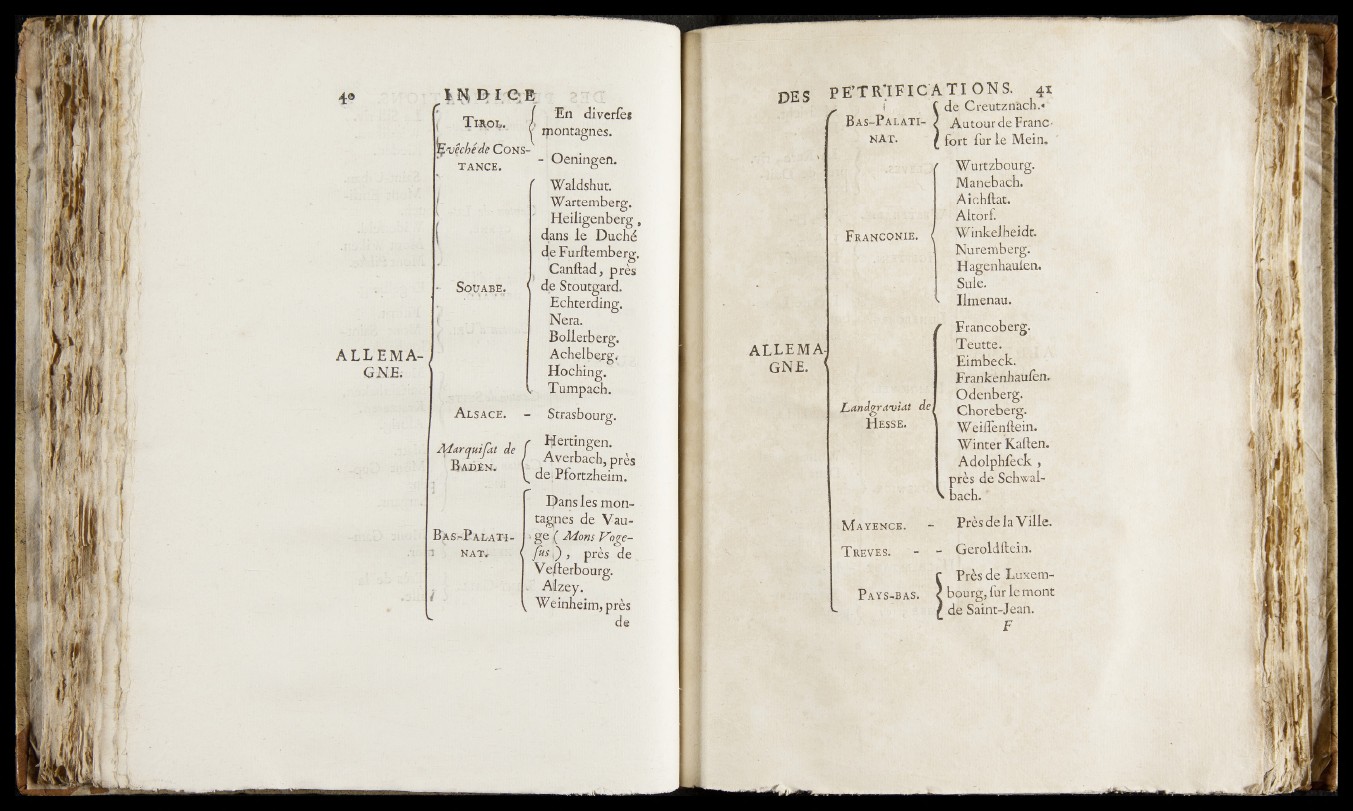 40 INDICE
TIROL.
En diverſes
montagnes.
Evêché de CONS-
TANCE.
- Oeningen.
SOUABE.
Waldshut.
Wartemberg.
Heiligenberg,
dans le Duché
de Furſtemberg.
Canſtad, près
de Stoutgard.
Echterding.
Nera.
Bollerberg.
Achelberg.
Hoching.
Tumpach.
ALLEMA-
GNE.
ALSACE. - Strasbourg.
Marquiſat de
BADEN.
Hertingen.
Averbach, près
de Pfortzheim.
BAS-PALATI-
NAT.
Dans les mon-
tagnes de Vau-
ge ( Mons Voge-
ſus ), près de
Veſterbourg.
Alzey.
Weinheim, près
de
DES PETRIFICATIONS. 41
BAS-PALATI-
NAT.
de Creutznach.
Autour de Franc-
fort ſur le Mein.
FRANCONIE.
Wurtzbourg.
Manebach.
Aichſtat.
Altorf.
Winkelheidt.
Nuremberg.
Hagenhauſen.
Sule.
Ilmenau.
ALLEMA-
GNE.
Landgraviat de
HESSE.
Francoberg.
Teutte.
Eimbeck.
Frankenhauſen.
Odenberg.
Choreberg.
Weiſſenſtein.
Winter Kaſten.
Adolphſeck,
près de Schwal-
bach.
MAYENCE. - Près de la Ville.
TREVES. - - Geroldſtein.
PAYS-BAS.
Près de Luxem-
bourg, ſur le mont
de Saint-Jean.
F